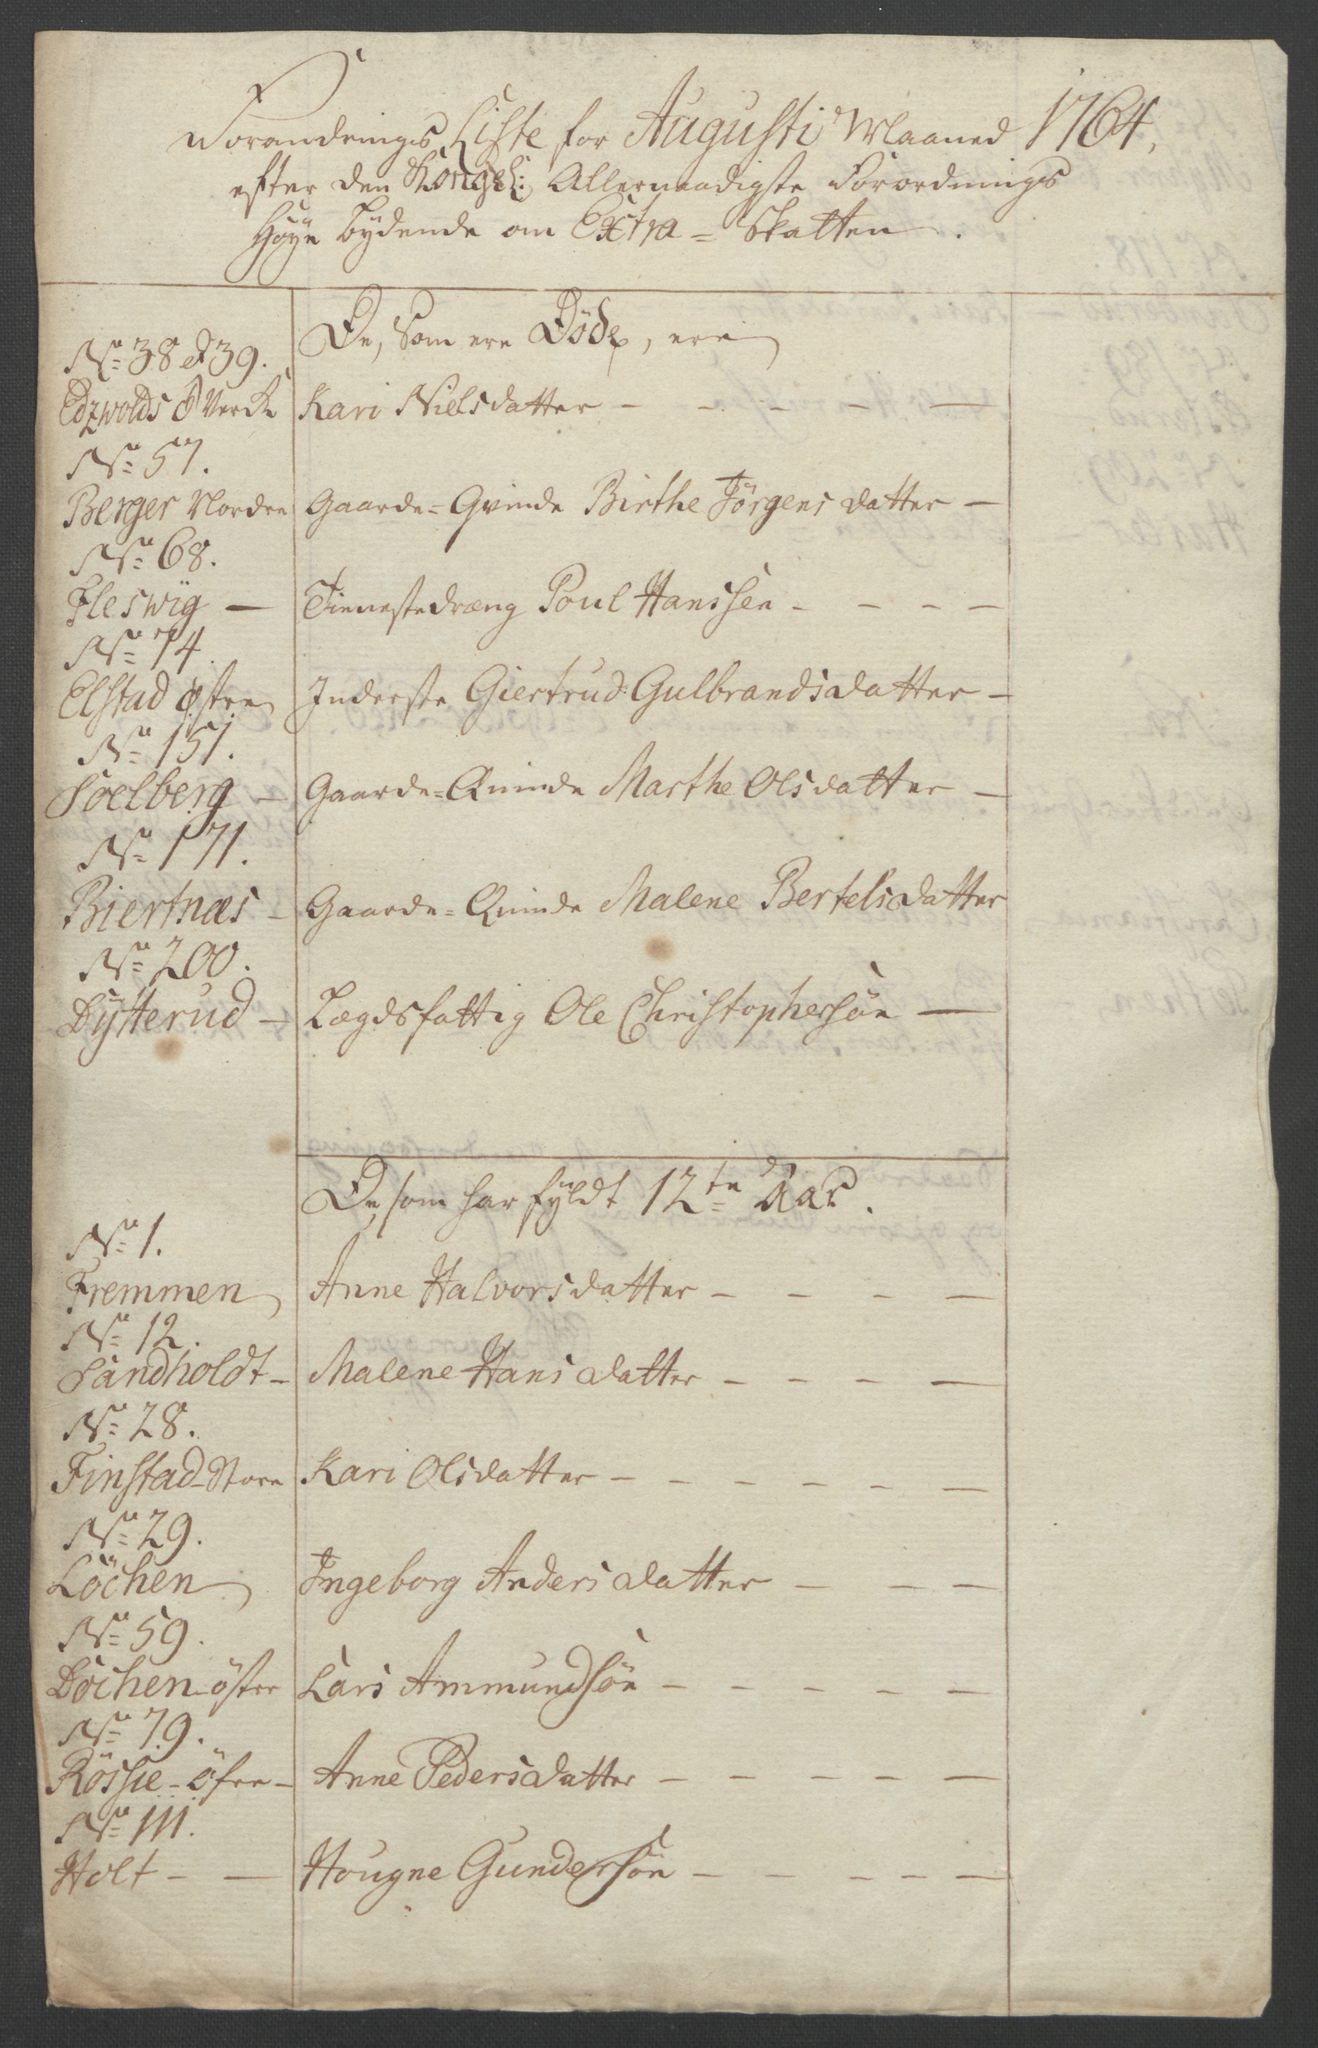 Forandrings Liste for Augusti Maaned 1764,
efter den Kongel: Allernaadigste Forordnings
Høye Lydende om Extra = Skatten.
De, som ere Døde, ere
No 38 & 39.
Edzwolds Verck Kari Nielsdatter — — — — —
No 57.
Berger Nordre Gaarde = Qvinde Birthe Jørgensdatter —
No 68.
Fleswiig — Tienestedræng Poul Hanssen — — — —
No 74.
Elstad østre Inderste Giertrud Gulbrandsdatter —
No 151.
Soelberg — Gaarde = Quinde Marthe Olsdatter —
No 171.
Biertnæs — Gaarde = Quinde Malene Bertelsdatter
No 200.
Dytterud — Lægdsfattig Ole Christophersøn —
De, som har fyldt 12te Aar.
No 1.
Fremmen Anne Halvorsdatter — — — —
No 12.
Sandholdt — Malene Hansdatter — — — —
No 28.
Finstad - Store Kari Olsdatter — — — — —
No 29.
Löchen Ingeborg Andersdatter — — —
No 59.
Dochen öster Lars Ammundsøn — — — — —
No 79.
Rössie - öfre — Anne Pedersdatter — — — — —
No 111.
Holt — — Hougne Gundersøn — — — — —